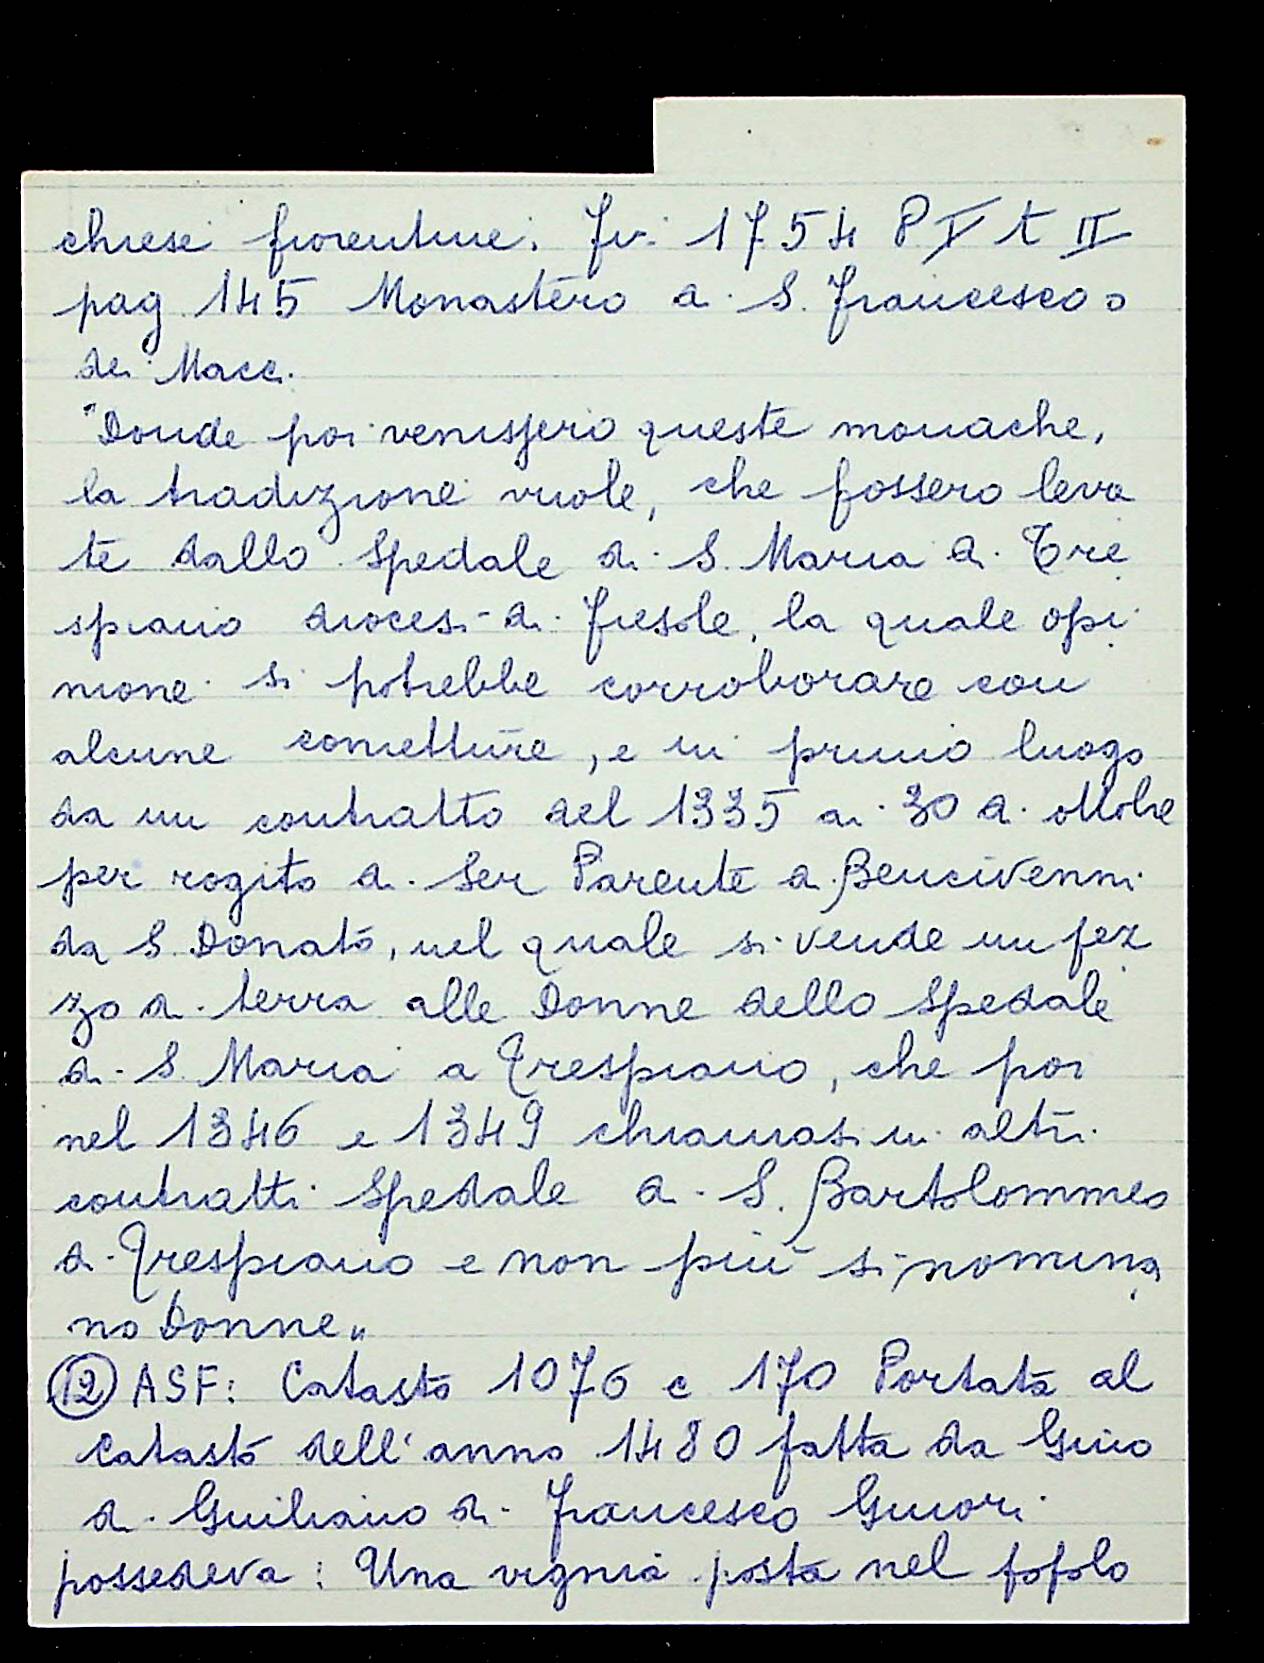 chiese fiorentine. Fi. 1754 P V t II
pag. 145 Monastero di S. Francesco o
dei Macci.
"Donde poi venissero queste monache,
la tradizione vuole, che fossero leva
te dallo Spedale di S. Maria di Tre
spiano diocesi di Fiesole, la quale opi
nione si potrebbe corroborare con
alcune conietture, e in primo luogo
da un contratto del 1335 ai 30 di ottobre
per rogito di Ser Parente di Bencivenni
da S. Donato, nel quale si vende un pez
zo di terra alle Donne dello Spedale
di S. Maria a Trespiano, che poi
nel 1346 e 1349 chiamasi in altri
contratti Spedale di S. Bartolommeo
di Trespiano e non più si nomina
no Donne"
(12) ASF: Catasto 1076 c 170 Portata al
Catasto dell'anno 1480 fatta da Gino
di Guiliano di Francesco Ginori
possedeva: Una vignia posta nel popolo